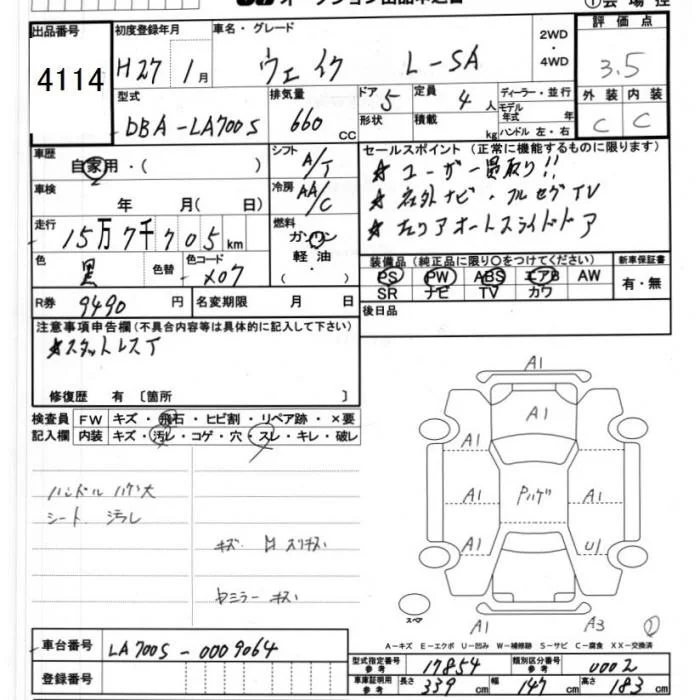 オークション出品申込書
①会場控
出品番号 初度登録年月 車名・グレード 2WD・4WD 評価点
4114 H27年 1月 ウェイク L-SA 3.5
型式 排気量 ドア 5 定員 4人 ディーラー・並行 外装 内装
DBA-LA700S 660cc 形状 積載 kg モデル年式 年 C C
ハンドル 左・右
車歴 自家用・( ) シフト A/T セールスポイント(正常に機能するものに限ります)
★ユーザー買取り!!
車検 年 月(日) 冷房 AA/C ★社外ナビ・フルセグTV
走行 15万7千705km 燃料 ガソリン・軽油・( ) ★左リアオートスライドドア
色 黒 色替 色コード X07 装備品(純正品に限り○をつけてください) 新車保証書
PS PW ABS エアB AW 有・無
SR ナビ TV カワ
R券 9490円 名変期限 月 日 後日品
注意事項申告欄(不具合内容等は具体的に記入して下さい)
★スタットレスT
修復歴 有〔箇所 〕
検査員 FW キズ・飛石・ヒビ割・リペア跡・×要
記入欄 内装 キズ・汚レ・コゲ・穴・スレ・キレ・破レ
ハンドル ハゲ大
シート 汚レ
キズ 凹 スリキズ
ミラー キズ
A1
A1
A1 A1
A1 Pハゲ A1
A1 U1
スペア
A1 A3 ②
A-キズ E-エクボ U-凹み W-補修跡 S-サビ C-腐食 XX-交換済
車台番号 LA700S-0009064
型式指定番号 参考 17854 類別区分番号 参考 0002
登録番号 車庫証明用 参考 長さ 339cm 幅 147cm 高さ 183cm